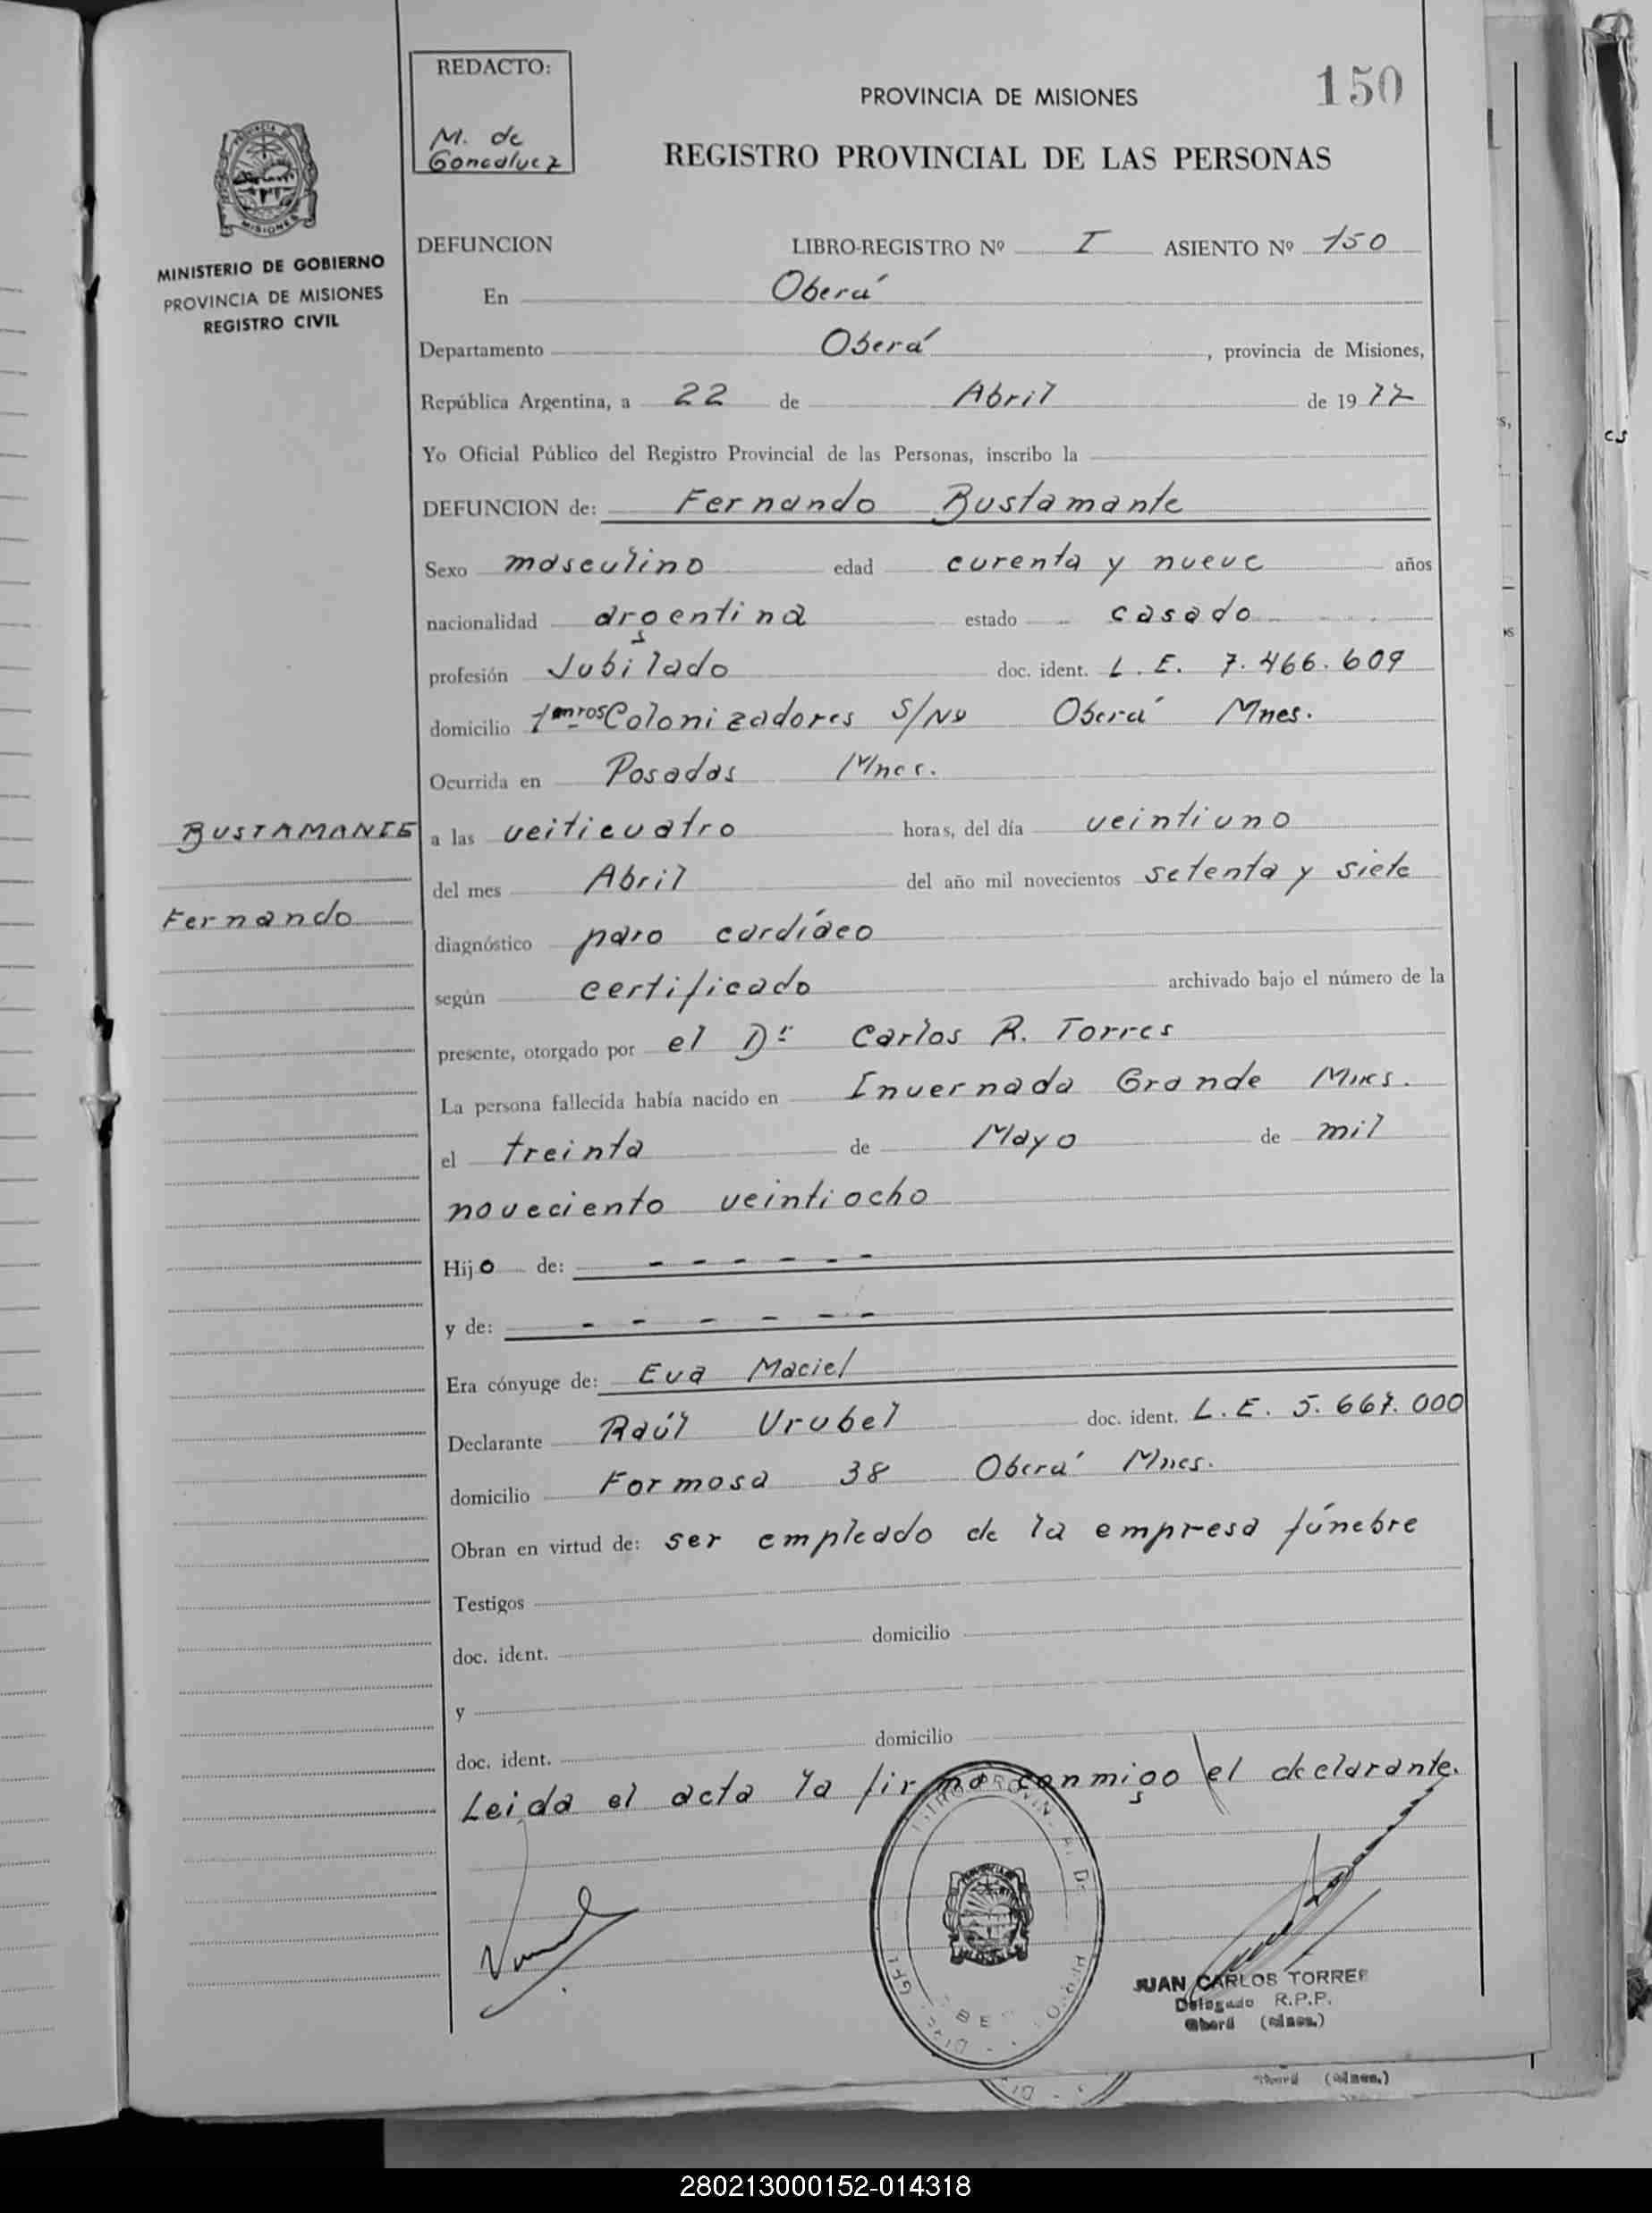 150
REDACTO:
M. de
Goncalvez
PROVINCIA DE MISIONES
REGISTRO PROVINCIAL DE LAS PERSONAS
MISIONES
MINISTERIO DE GOBIERNO
PROVINCIA DE MISIONES
REGISTRO CIVIL
DEFUNCION LIBRO-REGISTRO Nº I ASIENTO Nº 150
En Oberá
Departamento Oberá, provincia de Misiones,
República Argentina, a 22 de Abril de 1977
Yo Oficial Público del Registro Provincial de las Personas, inscribo la
DEFUNCION de: Fernando Bustamante
Sexo masculino edad curenta y nueve años
nacionalidad argentina estado casado
profesión Jubilado doc. ident. L. E. 7.466.609
domicilio 1eros Colonizadores S/Nº Oberá Mnes.
Ocurrida en Posadas Mnes.
BUSTAMANTE
Fernando
a las veiticuatro horas, del día veintiuno
del mes Abril del año mil novecientos setenta y siete
diagnóstico paro cardíaco
según certificado archivado bajo el número de la
presente, otorgado por el Dr Carlos R. Torres
La persona fallecida había nacido en Invernada Grande Mnes.
el treinta de Mayo de mil
noveciento veintiocho
Hijo de: - - - - - -
y de: - - - - - -
Era cónyuge de: Eva Maciel
Declarante Raúl Urubel doc. ident. L. E. 5.667.000
domicilio Formosa 38 Oberá Mnes.
Obran en virtud de: ser empleado de la empresa fúnebre
Testigos
doc. ident. domicilio
y
doc. ident. domicilio
Leida el acta la firma conmigo el declarante.
JUAN CARLOS TORRES
Delegado R.P.P.
Oberá (Mnes.)
Oberá (Mnes.)
280213000152-014318